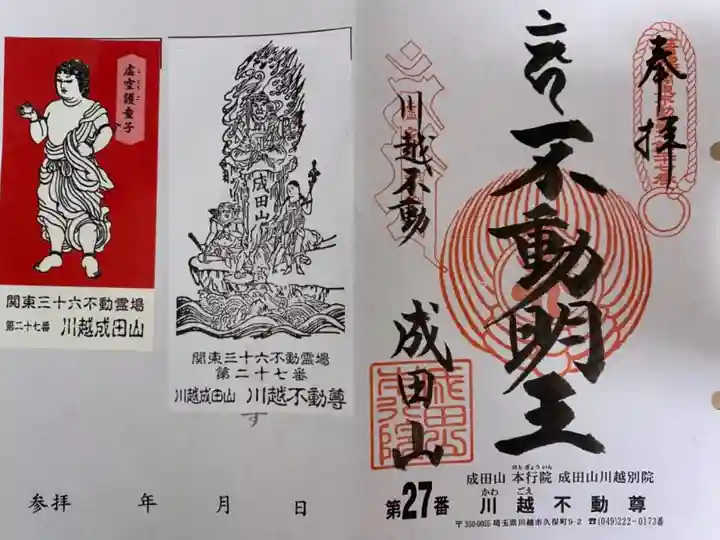 虚空護童子
こくうご
関東三十六不動霊場
第二十七番 川越成田山
成田山
関東三十六不動霊場
第二十七番
川越成田山 川越不動尊
参拝 年 月 日
奉拝
不動明王
川越不動
成田山
成田山 本行院 成田山川越別院
ほんぎょういん
かわ ごえ
第27番 川越不動尊
〒350-0055 埼玉県川越市久保町9-2 ☎(049)222-0173番